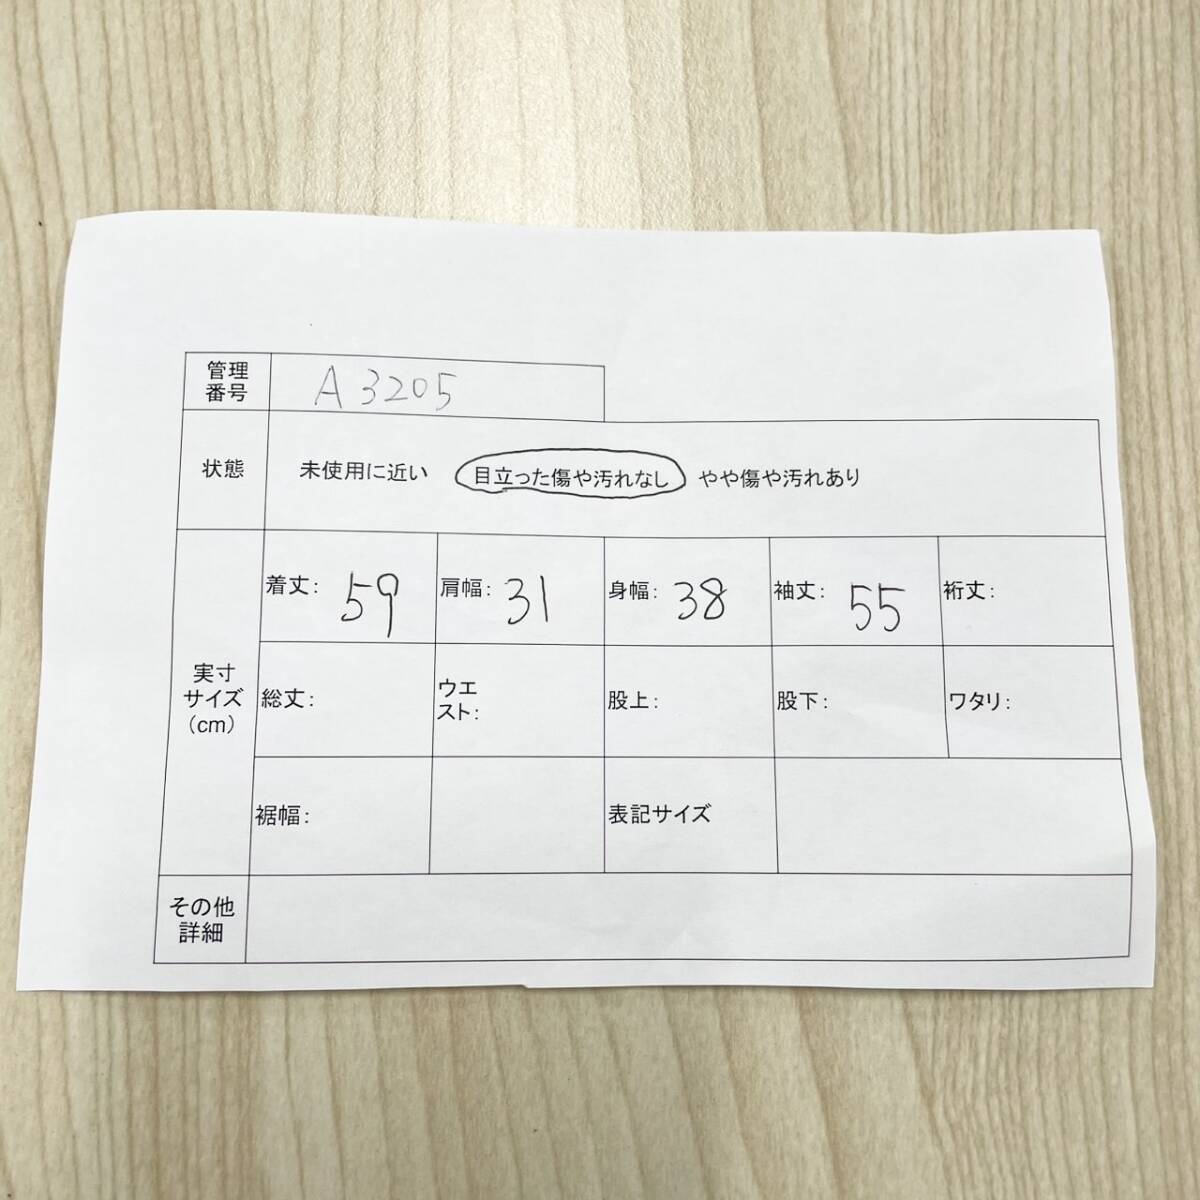 管理
番号
A3205
状態
未使用に近い 目立った傷や汚れなし やや傷や汚れあり
実寸
サイズ
（cm）
着丈: 59 肩幅: 31 身幅: 38 袖丈: 55 裄丈:
総丈: ウエ
スト: 股上: 股下: ワタリ:
裾幅: 表記サイズ
その他
詳細